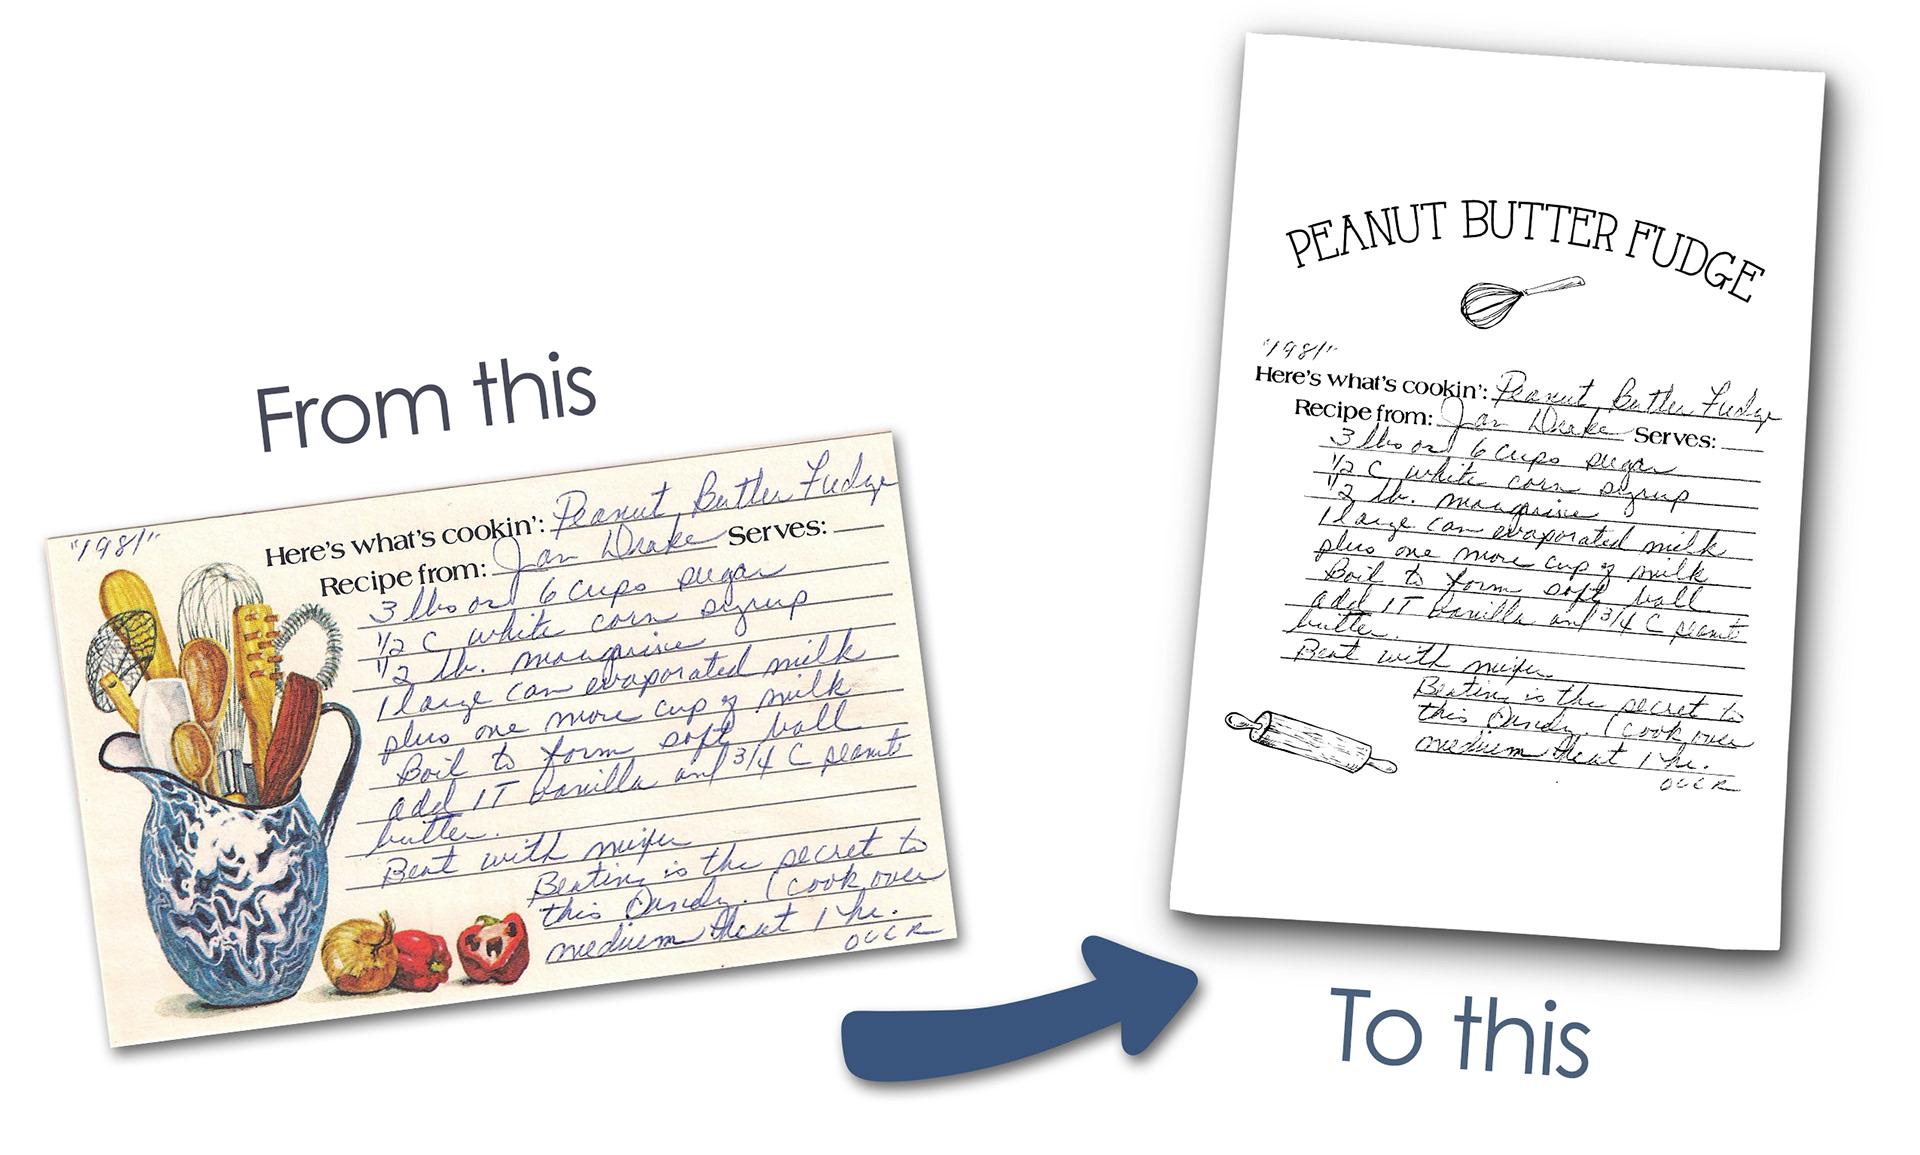 From this
"1981"
Here's what's cookin': Peanut Butter Fudge
Recipe from: Jan Drake Serves:
3 lbs or 6 cups sugar
1/2 C white corn syrup
1/2 lb. margarine
1 large can evaporated milk
plus one more cup of milk
Boil to form soft ball
add 1T vanilla and 3/4 C peanut
butter.
Beat with mixer
Beating is the secret to
this candy. (cook over
medium heat 1 hr.
OVER
To this
PEANUT BUTTER FUDGE
"1981"
Here's what's cookin': Peanut Butter Fudge
Recipe from: Jan Drake Serves:
3 lbs or 6 cups sugar
1/2 C white corn syrup
1/2 lb. margarine
1 large can evaporated milk
plus one more cup of milk
Boil to form soft ball
add 1T vanilla and 3/4 C peanut
butter.
Beat with mixer
Beating is the secret to
this candy. (cook over
medium heat 1 hr.
OVER